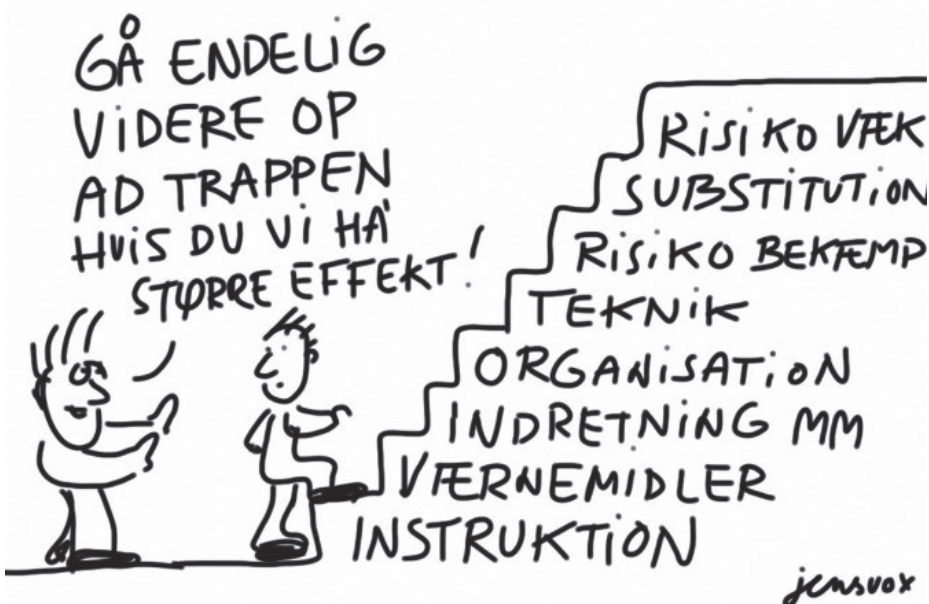 GÅ ENDELIG
VIDERE OP
AD TRAPPEN
HVIS DU VI HA'
STØRRE EFFEKT!
RISIKO VÆK
SUBSTITUTION
RISIKO BEKÆMP
TEKNIK
ORGANISATION
INDRETNING MM
VÆRNEMIDLER
INSTRUKTION
jensvox